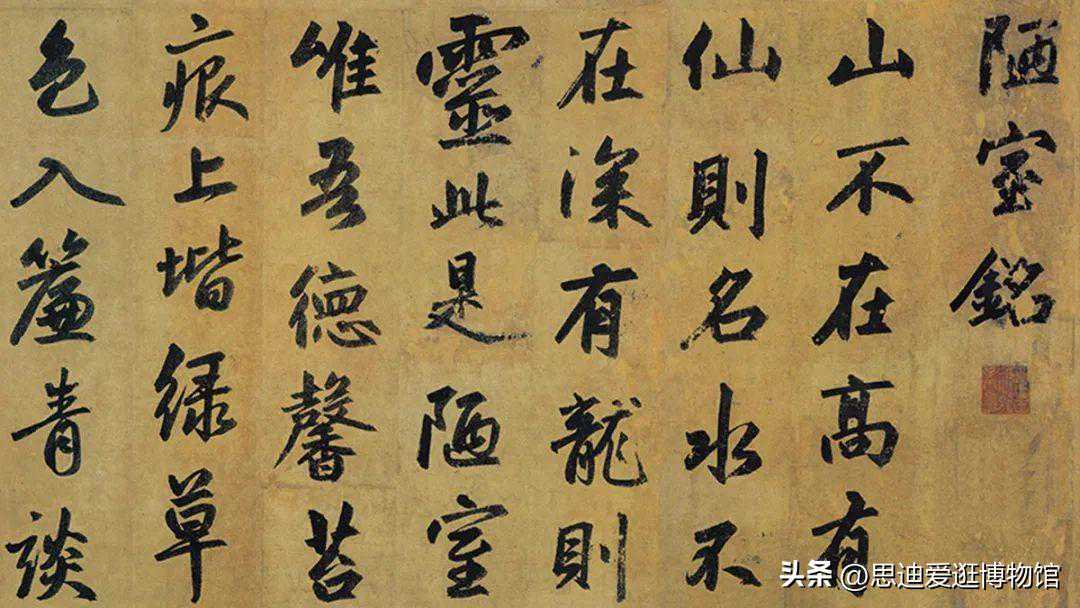 陋室銘
山不在高有
仙則名水不
在深有龍則
靈此是陋室
惟吾德馨苔
痕上堦緑草
色入簾青談
头条 @思迪爱逛博物馆